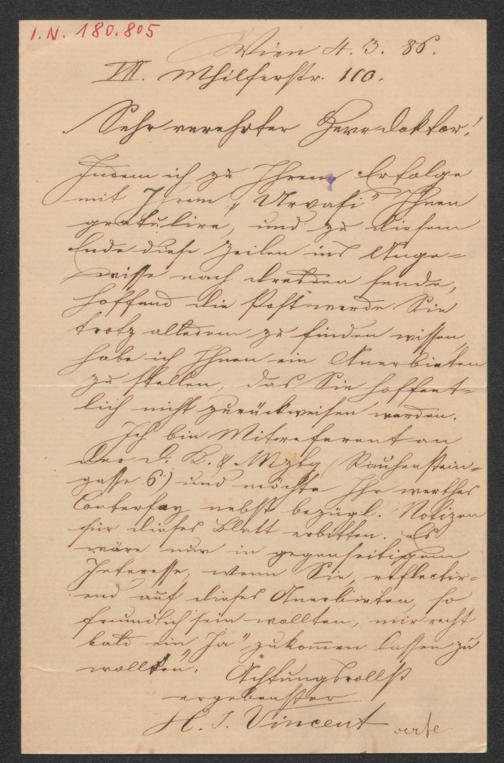 I.N. 180.805
Wien 4. 3. 86.
VII. Mhilferstr. 110.
Sehr verehrter Herr Doktor!
Indem ich zu Ihrem Erfolge
mit Ihrem „Urvasi" Ihnen
gratulire, und zu diesem
Ende diese Zeilen ins Unge-
wisse nach Dresden sende,
hoffend die Post werde Sie
trotz alledem zu finden wissen,
habe ich Ihnen ein Anerbieten
zu stellen, das Sie hoffent-
lich nicht zurückweisen werden.
Ich bin Mitreferent an
der d. K. & Mztg (Rauhenstein-
gasse 6.) und möchte Ihr werthes
Conterfay nebst bezügl. Notizen
für dieses Blatt erbitten. Es
wäre nur in gegenseitigem
Interesse, wenn Sie, reflectir-
end auf dieses Anerbieten, so
freundlich sein wollten, mir recht
bald ein „Ja" zukommen lassen zu
wollen. Achtungsvollst
ergebenster
H. J. Vincent